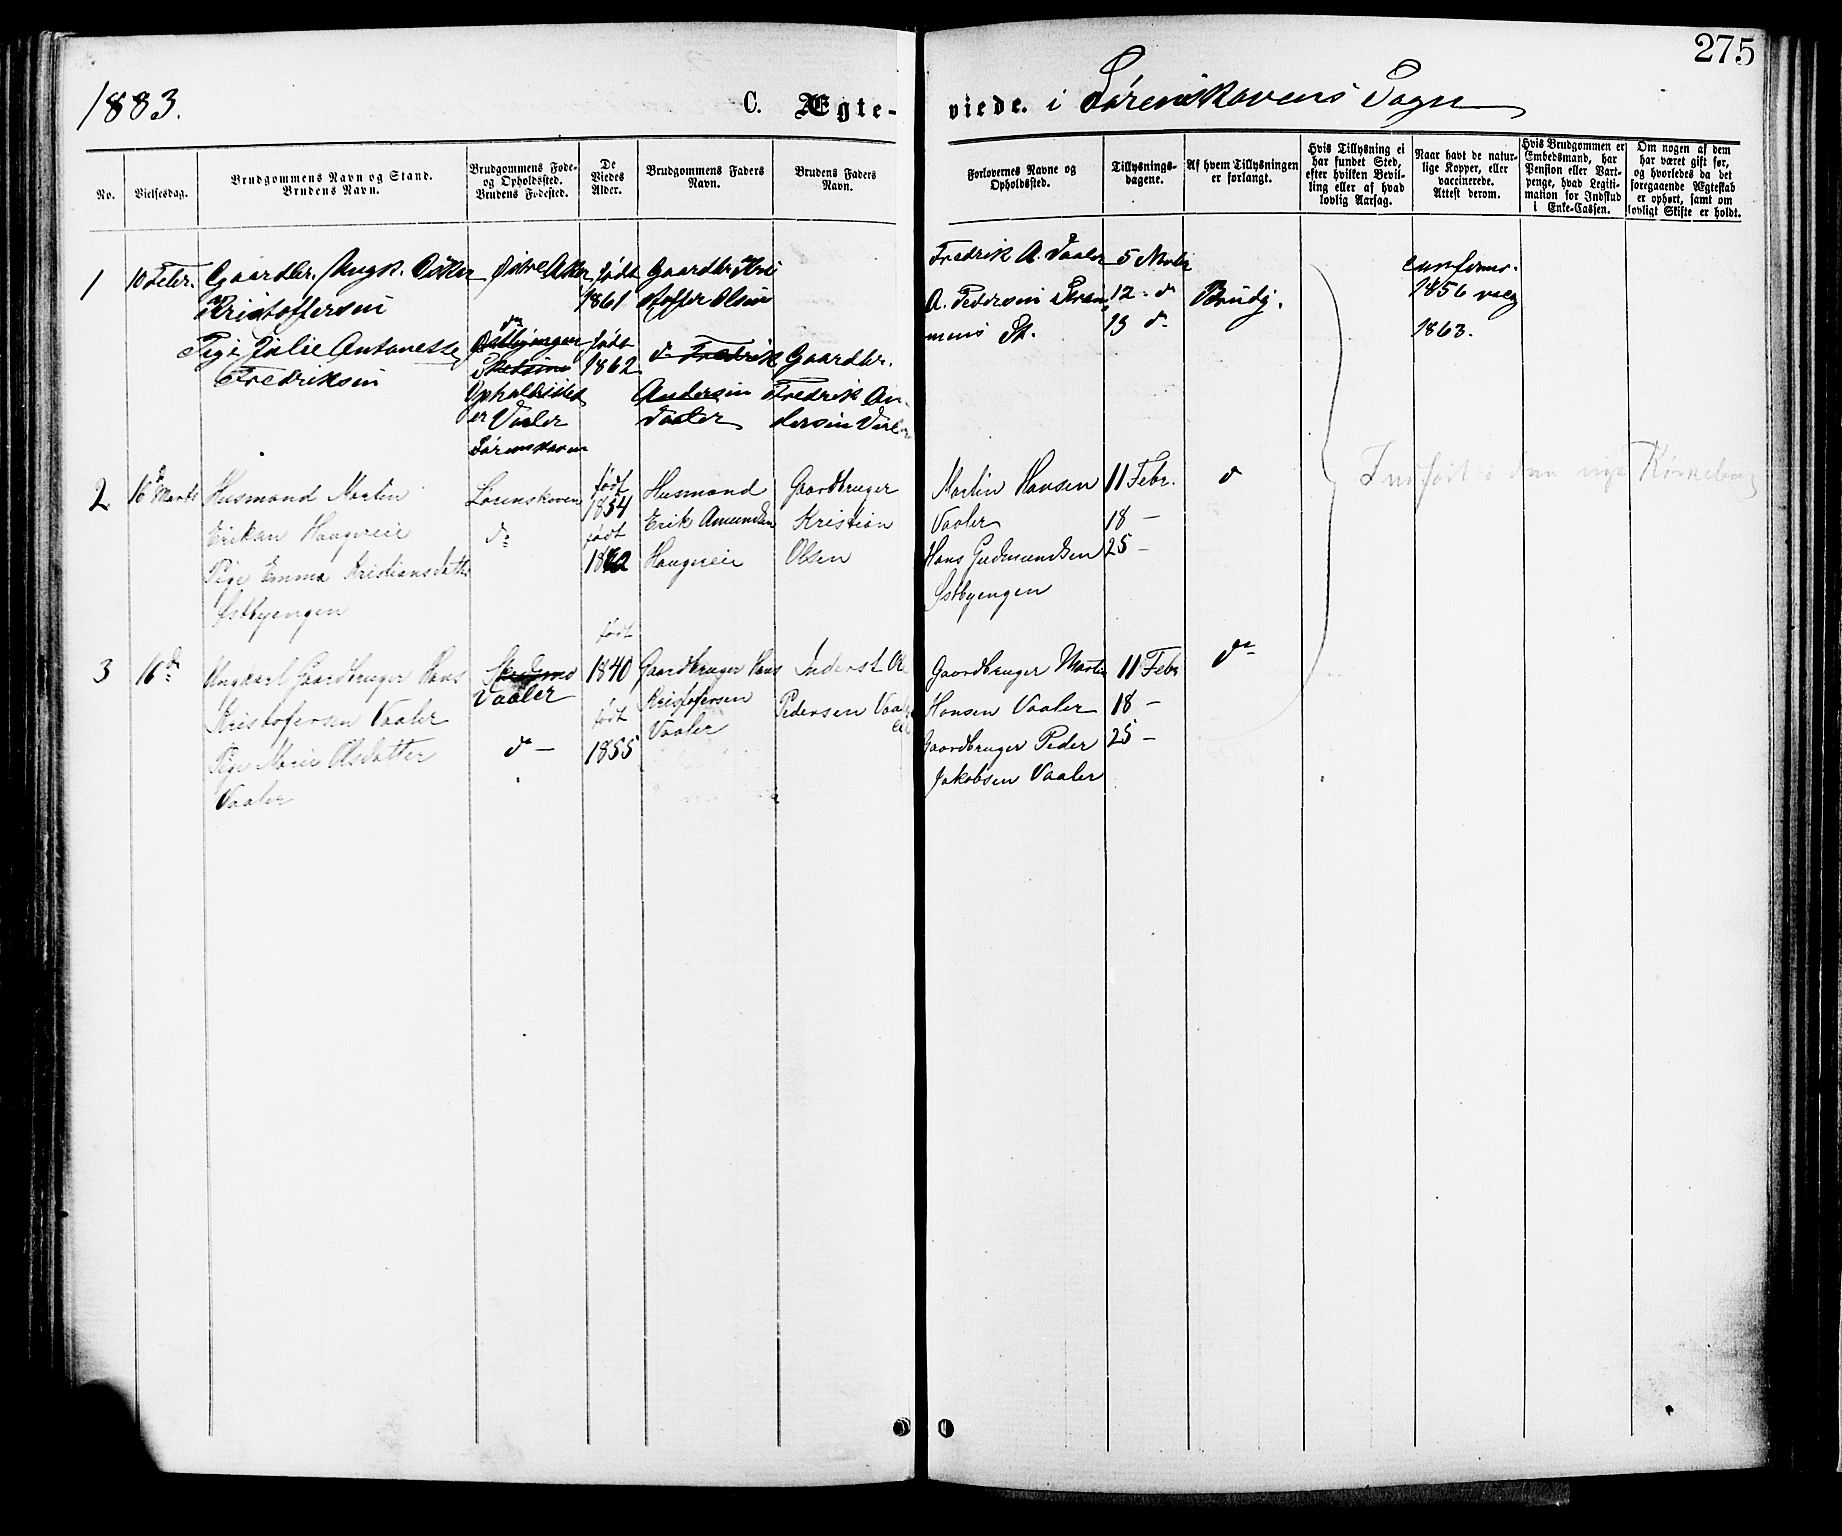 275
1883.
C. Ægte-
viede. i Lørenskovens Sogn
No.
Vielsesdag.
Brudgommens Navn og Stand.
Brudens Navn.
Brudgommens Føde-
og Opholdssted.
Brudens Fødested.
De
Viedes
Alder.
Brudgommens Faders
Navn.
Brudens Faders
Navn.
Forlovernes Navne og
Opholdssted.
Tillysnings-
dagene.
Af hvem Tillysningen
er forlangt.
Hvis Tillysning ei
har fundet Sted,
efter hvilken Bevil-
ling eller af hvad
lovlig Aarsag.
Naar havt de natur-
lige Kopper, eller
vaccinerede.
Attest derom.
Hvis Brudgommen er
Embedsmand, har
Pension eller Vart-
penge, hvad Legiti-
mation for Indskud
i Enke-Cassen.
Om nogen af dem
har været gift før,
og hvorledes da det
foregaaende Ægteskab
er ophørt, samt om
lovligt Skifte er holdt.
1
10 Febr.
Gaardbr. Ungk. Oskar
Kristoffersen
Pige Julie Antonette
Fredriksen
Østre Aker
Østbyengen
Skedsmo
Opholdssted
er Vaaler
Lørenskoven
født
1861
født
1862
Gaardbr. Kri
stoffer Olsen
d. Fredrik
Andersen
Vaaler
Gaardbr.
Fredrik An-
dersen Vaaler
Fredrik A. Vaaler
A. Pedersen Strøm
mens St.
5
12 - d
19 d.
Brudg.
1856
1863.
2
16 Marts
Husmand Martin
Eriksen Haugneie
Pige Emma Kristiansdatter
Østbyengen
Lørenskoven
d:
født
1854
født
1862
Husmand
Erik Amundsen
Haugneie
Gaardbruger
Kristian
Olsen
Martin Hansen
Vaaler
Hans Gudmundsen
Østbyengen
11 Febr.
18 —
25 —
d
Indført i den nye Kirkebog
3
16 d:
Ungkarl Gaardbruger Hans
Kristofersen Vaaler
Pige Marie Olsdatter
Vaaler
Skedsmo
Vaaler
d: —
født
1840
født
1855
Gaardbruger Hans
Kristofersen
Vaaler
Inderst Ole
Pedersen Vaaler
Gaardbruger Martin
Hansen Vaaler
Gaardbruger Peder
Jakobsen Vaaler
11 Febr
18 —
25 —
d: